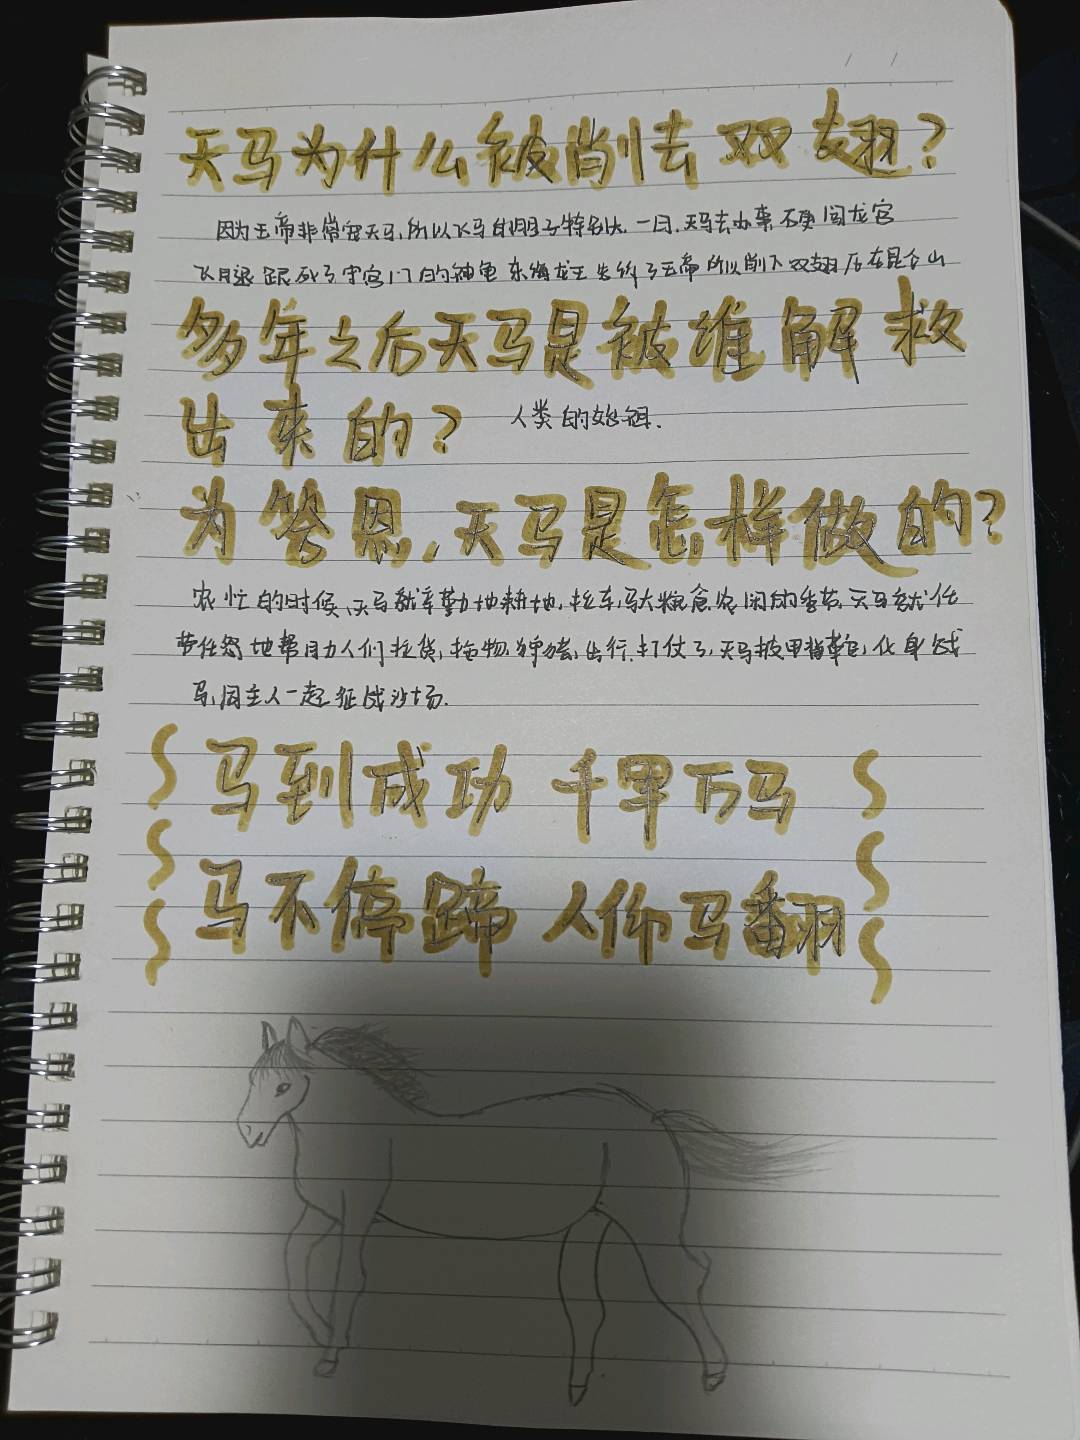 天马为什么被削去双翅?
因为玉帝非常宠天马,所以飞马的胆子特别大.一日.天马去办案 硬闯龙宫
飞腿踢死了守宫门的神龟 东海龙王告给了玉帝 所以削下双翅压在昆仑山
多年之后天马是被谁解救
出来的?
人类的始祖.
为答恩,天马是怎样做的?
农忙的时候,天马就辛勤地耕地,拉车,驮粮食 农闲的季节,天马就任
劳任怨地帮助人们拉货,拖物,出行.打仗了,天马披甲背鞍,化身战
马,同主人一起征战沙场.
马到成功 千军万马
马不停蹄 人仰马翻